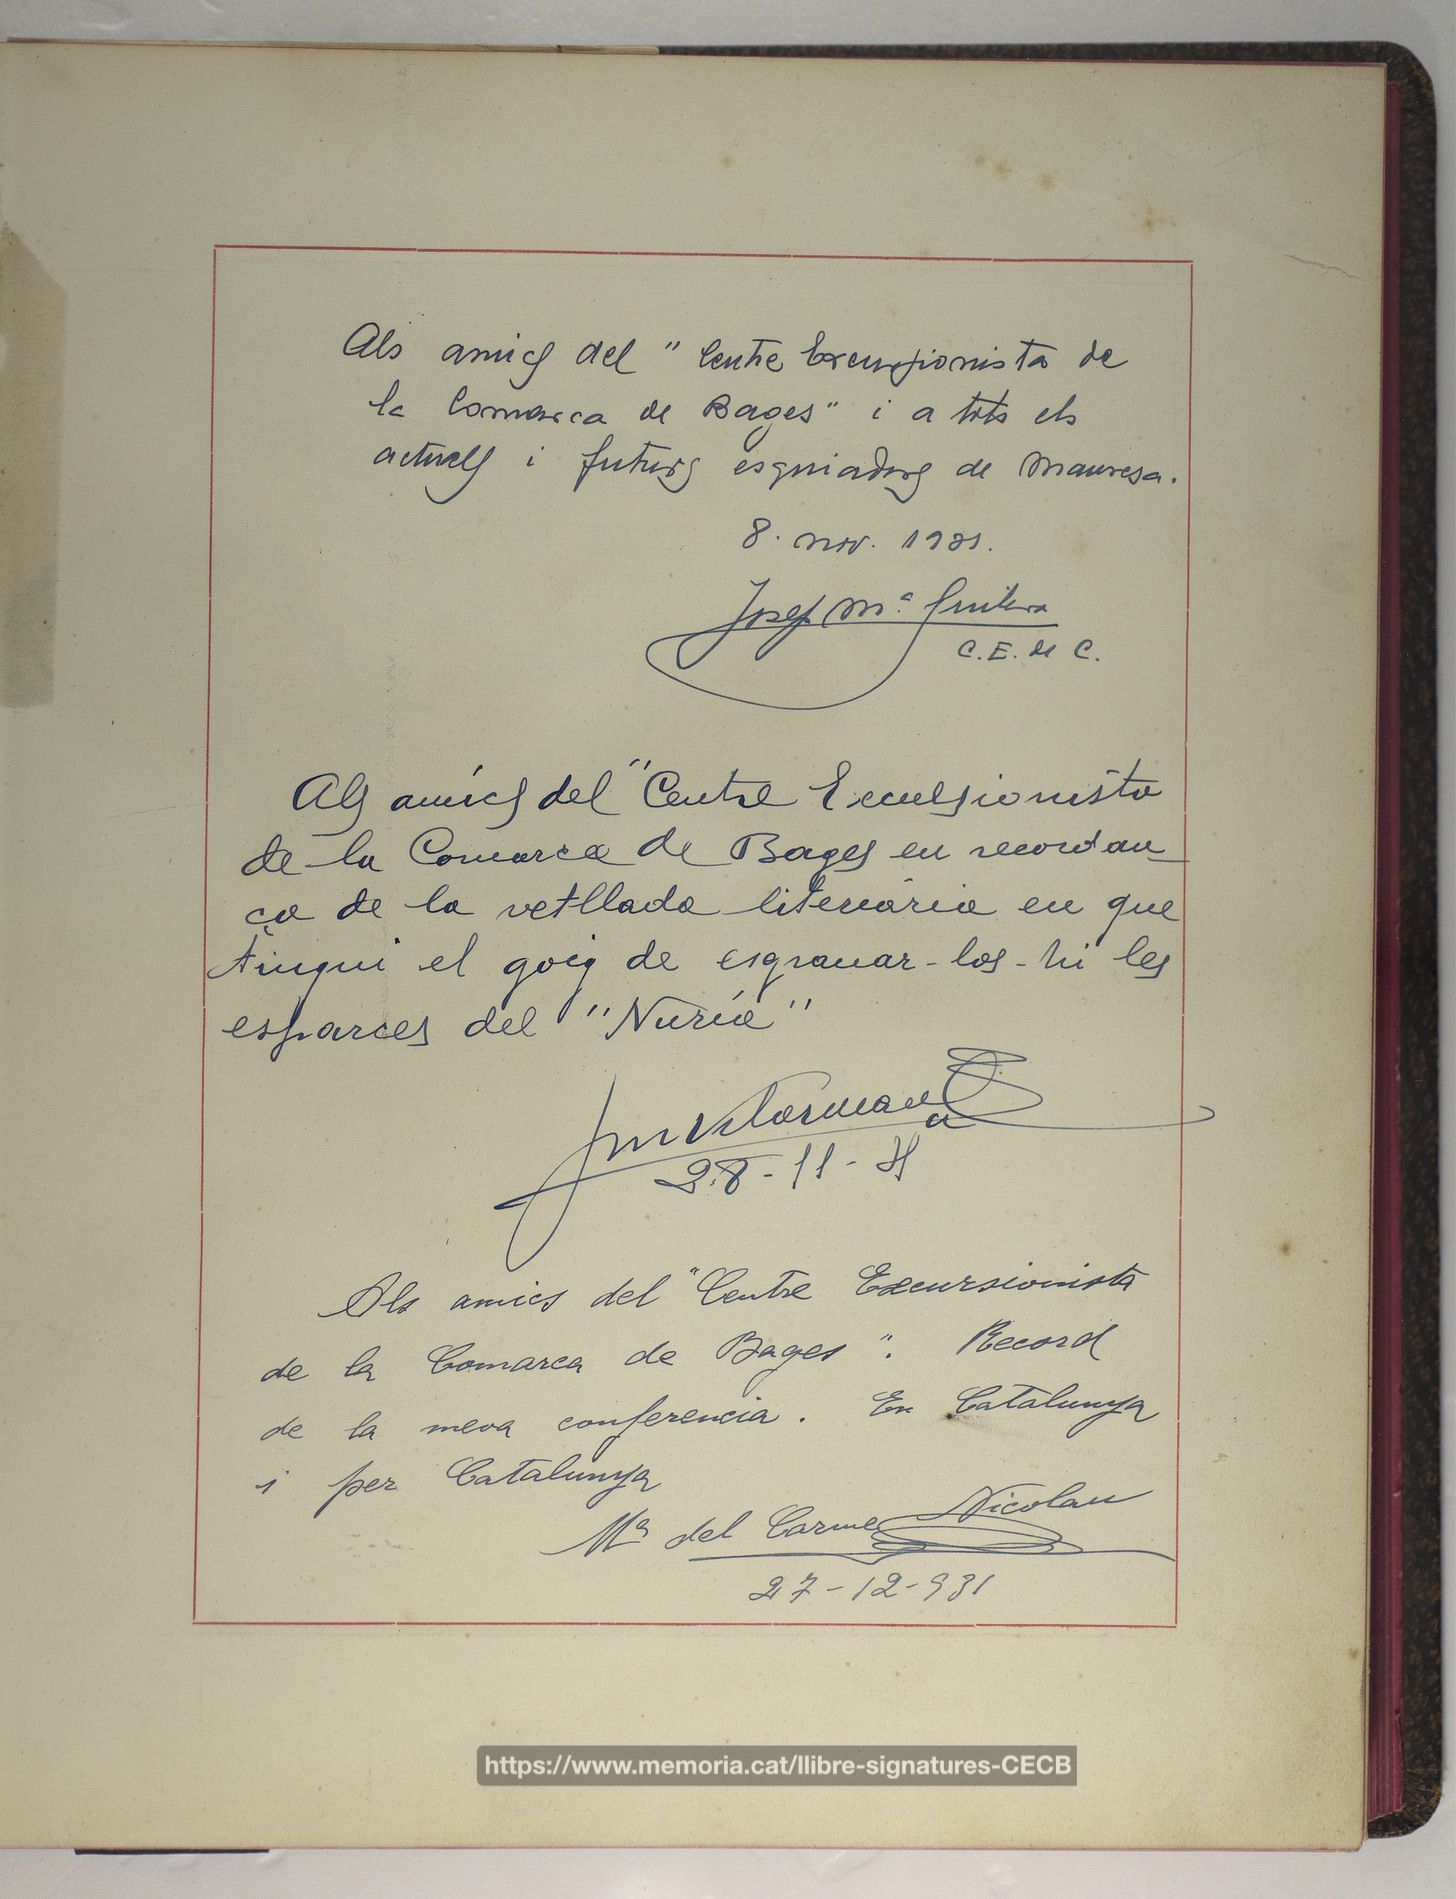 Als amics del "Centre Excursionista de
la Comarca de Bages" i a tots els
actuals i futurs esquiadors de Manresa.
8. nov. 1931.
Josep Mª. Guilera
C. E. de C.
Als amics del "Centre Excursionista
de la Comarca de Bages en recordan-
ça de la vetllada literária en que
tingui el goig de esgranar-los-hi les
esparces del "Nuria"
28-11-31
Als amics del "Centre Excursionista
de la Comarca de Bages". Record
de la meva conferencia. En Catalunya
i per Catalunya
Mª del Carme Nicolau
27-12-931
https://www.memoria.cat/llibre-signatures-CECB